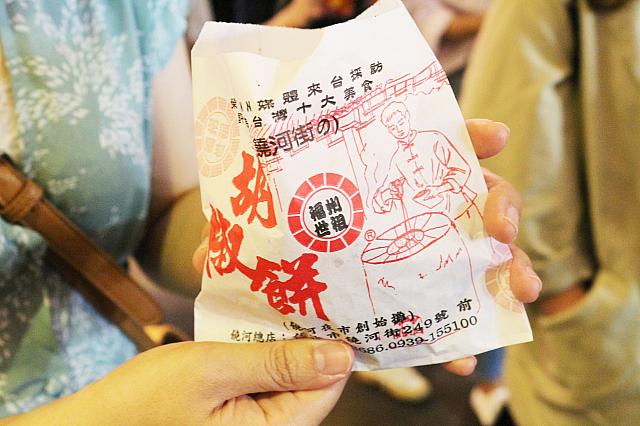 媒體來台採訪
台灣十大美食
饒河街の)
胡椒餅
福州
世祖
®
(饒河夜市創始攤)
饒河總店:
饒河街249號前
586.0939-155100